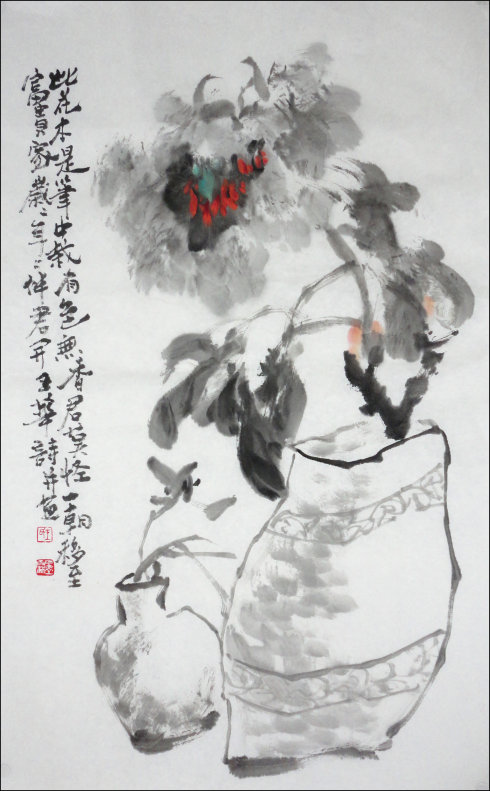 此花本是筆中栽有色無香君莫怪一朝移至
富貴家歲々年々伴君开王華詩并畫